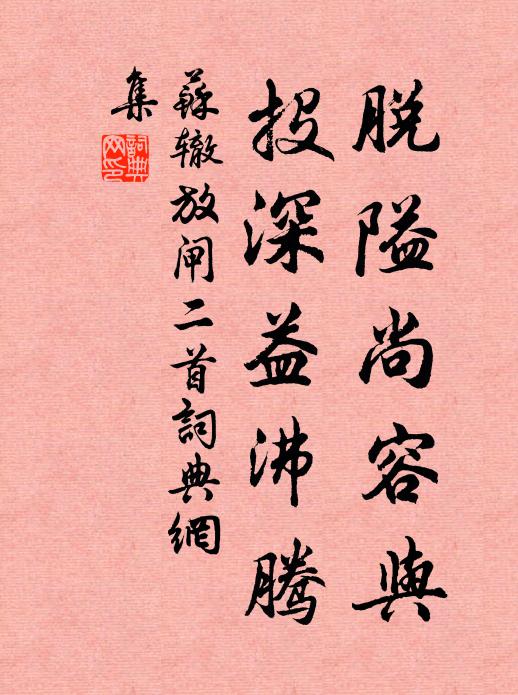 脱隘尚容與
投深益沸腾
蘇辙放闸二首詞典網
集
詞典
网印